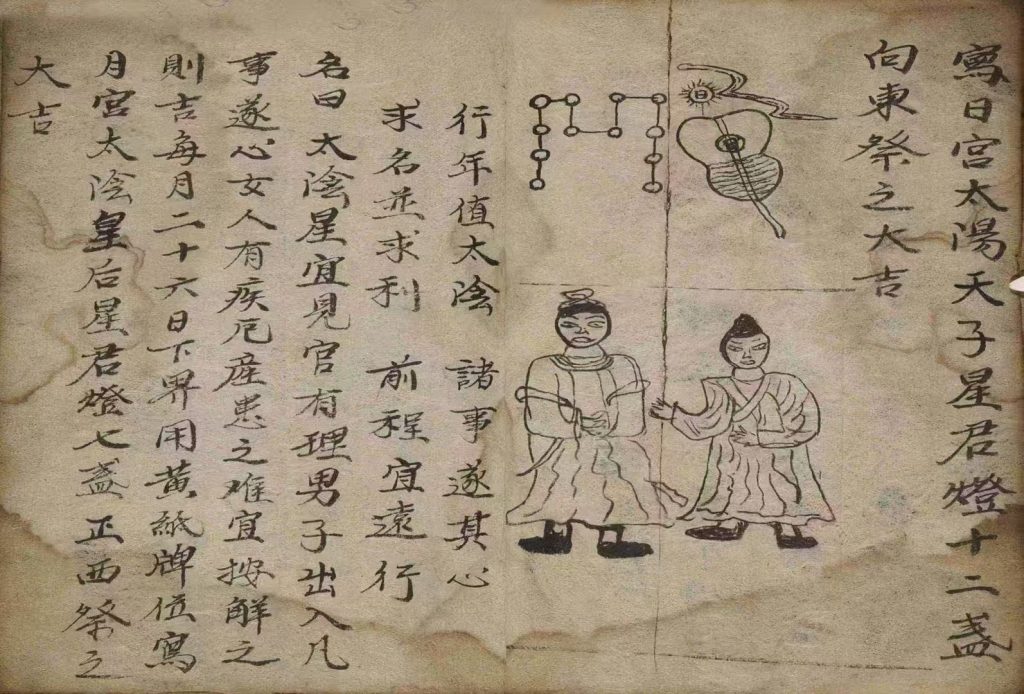 寫日宮太陽天子星君燈十二盞
向東祭之大吉
日
行年值太陰 諸事遂其心
求名並求利 前程宜遠行
名曰太陰星宜見官有理男子出入凡
事遂心女人有疾厄産患之难宜按解之
則吉每月二十六日下界用黃紙牌位寫
月宮太陰皇后星君燈七盞正西祭之
大吉